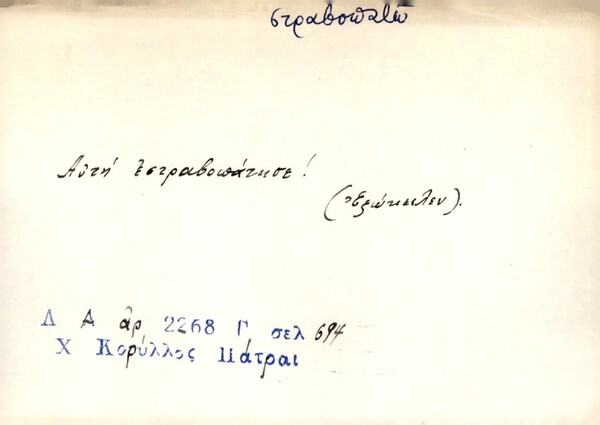 στραβοπατῶ
Αὐτή ἐστραβοπάτησε!
(Ἐξώκειλεν).
Λ Α ἀρ 2268 Γ σελ 694
Χ Κορύλλος Πάτραι